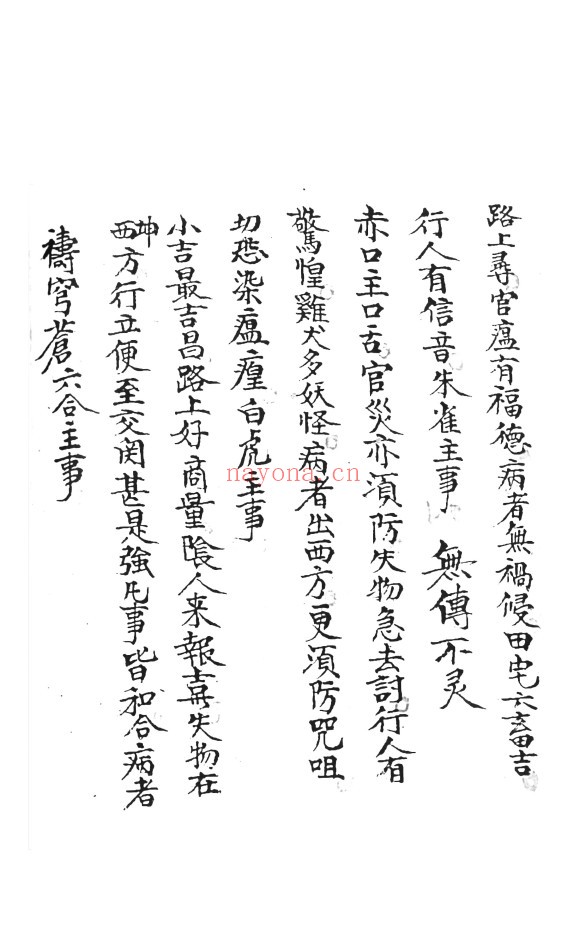 路上尋官瘟有福德病者無禍侵田宅六畜吉
行人有信音朱雀主事 無傳不灵
赤口主口舌官災亦須防失物急去討行人有
驚惶雞犬多妖怪病者出西方更須防咒咀
切恐染瘟瘽白虎主事
小吉最吉昌路上好商量陰人来報喜失物在
坤西方行立便至交関甚是強凡事皆和合病者
禱穹蒼六合主事
nayona.cn